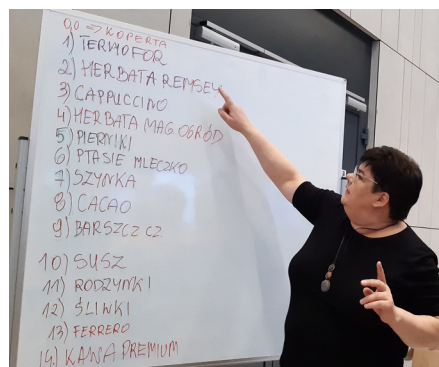 0,0 => KOPERTA
1) TERMOFOR
2) HERBATA REMSEY
3) CAPPUCCINO
4) HERBATA MAG. OGRÓD
5) PIERNIKI
6) PTASIE MLECZKO
7) SZYNKA
8) CACAO
9) BARSZCZ CZ.
10) SUSZ
11) RODZYNKI
12) ŚLIWKI
13) FERRERO
14) KAWA PREMIUM